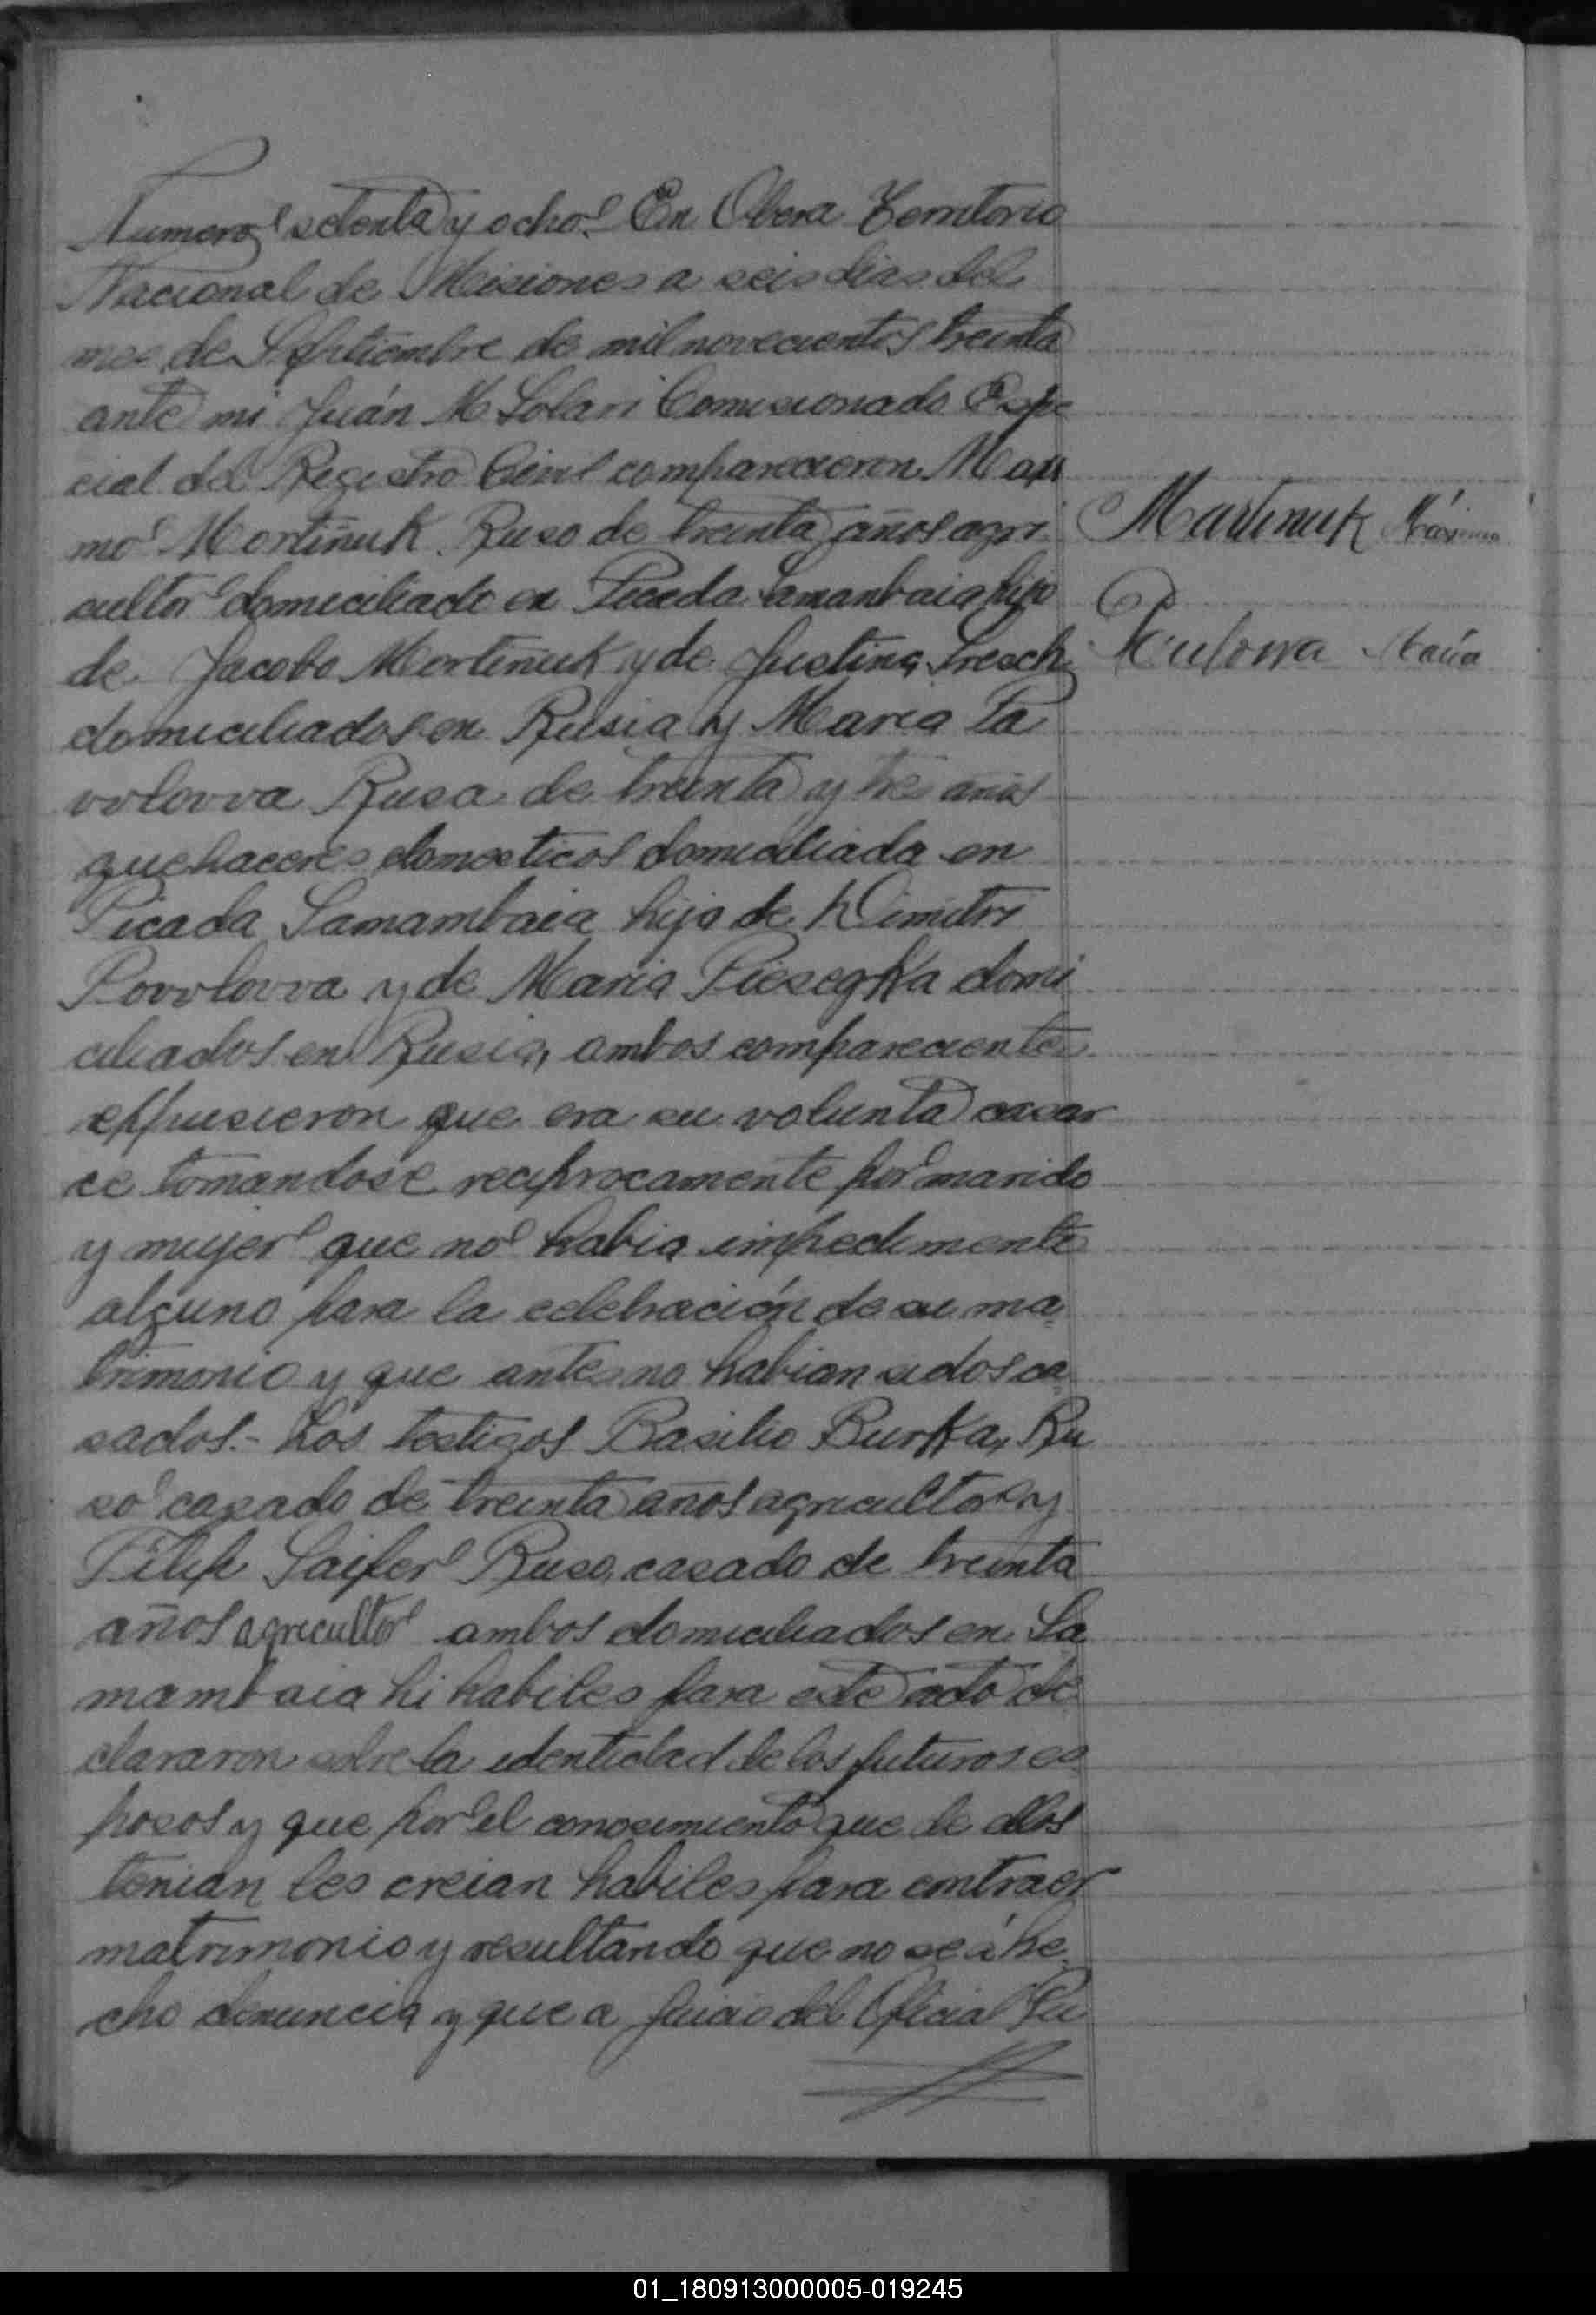 Numero setenta y ocho. En Obera Territorio
Nacional de Misiones a seis dias del
mes de Septiembre de mil novecientos treinta
ante mi Juán M Solari Comisionado Espe
cial del Registro Civil comparecieron Maxi
mo Mortiñuk Ruso de treinta años agri
cultor domiciliado en Picada Samanbaia hijo
de Jacobo Mortiñuk y de Justina
domiciliados en Rusia y Maria Pa
vvlovva Rusa de treinta y tres años
quehaceres domesticos domiciliada en
Picada Samambaia hija de Dimitri
Povvlovva y de Maria domi
ciliados en Rusia, ambos comparecientes
expusieron que era su volunta casar
ce tomandose reciprocamente por marido
y mujer que no habia impedimento
alguno para la celebración de su ma
trimonio y que antes no habian sidos ca
sados.- Los testigos Basilio Burka, Ru
so casado de treinta años agricultor y
Filip Saifer Ruso, casado de treinta
años agricultor ambos domiciliados en Sa
mambaia hi habiles para este acto de
clararon sobre la identidad de los futuros es
posos y que por el conosimiento que de ellos
tenian les creian habiles para contraer
matrimonio y resultando que no se á he
cho denuncia y que a juicio del Oficial Pu
Martinuk Máximo
María
01_180913000005-019245